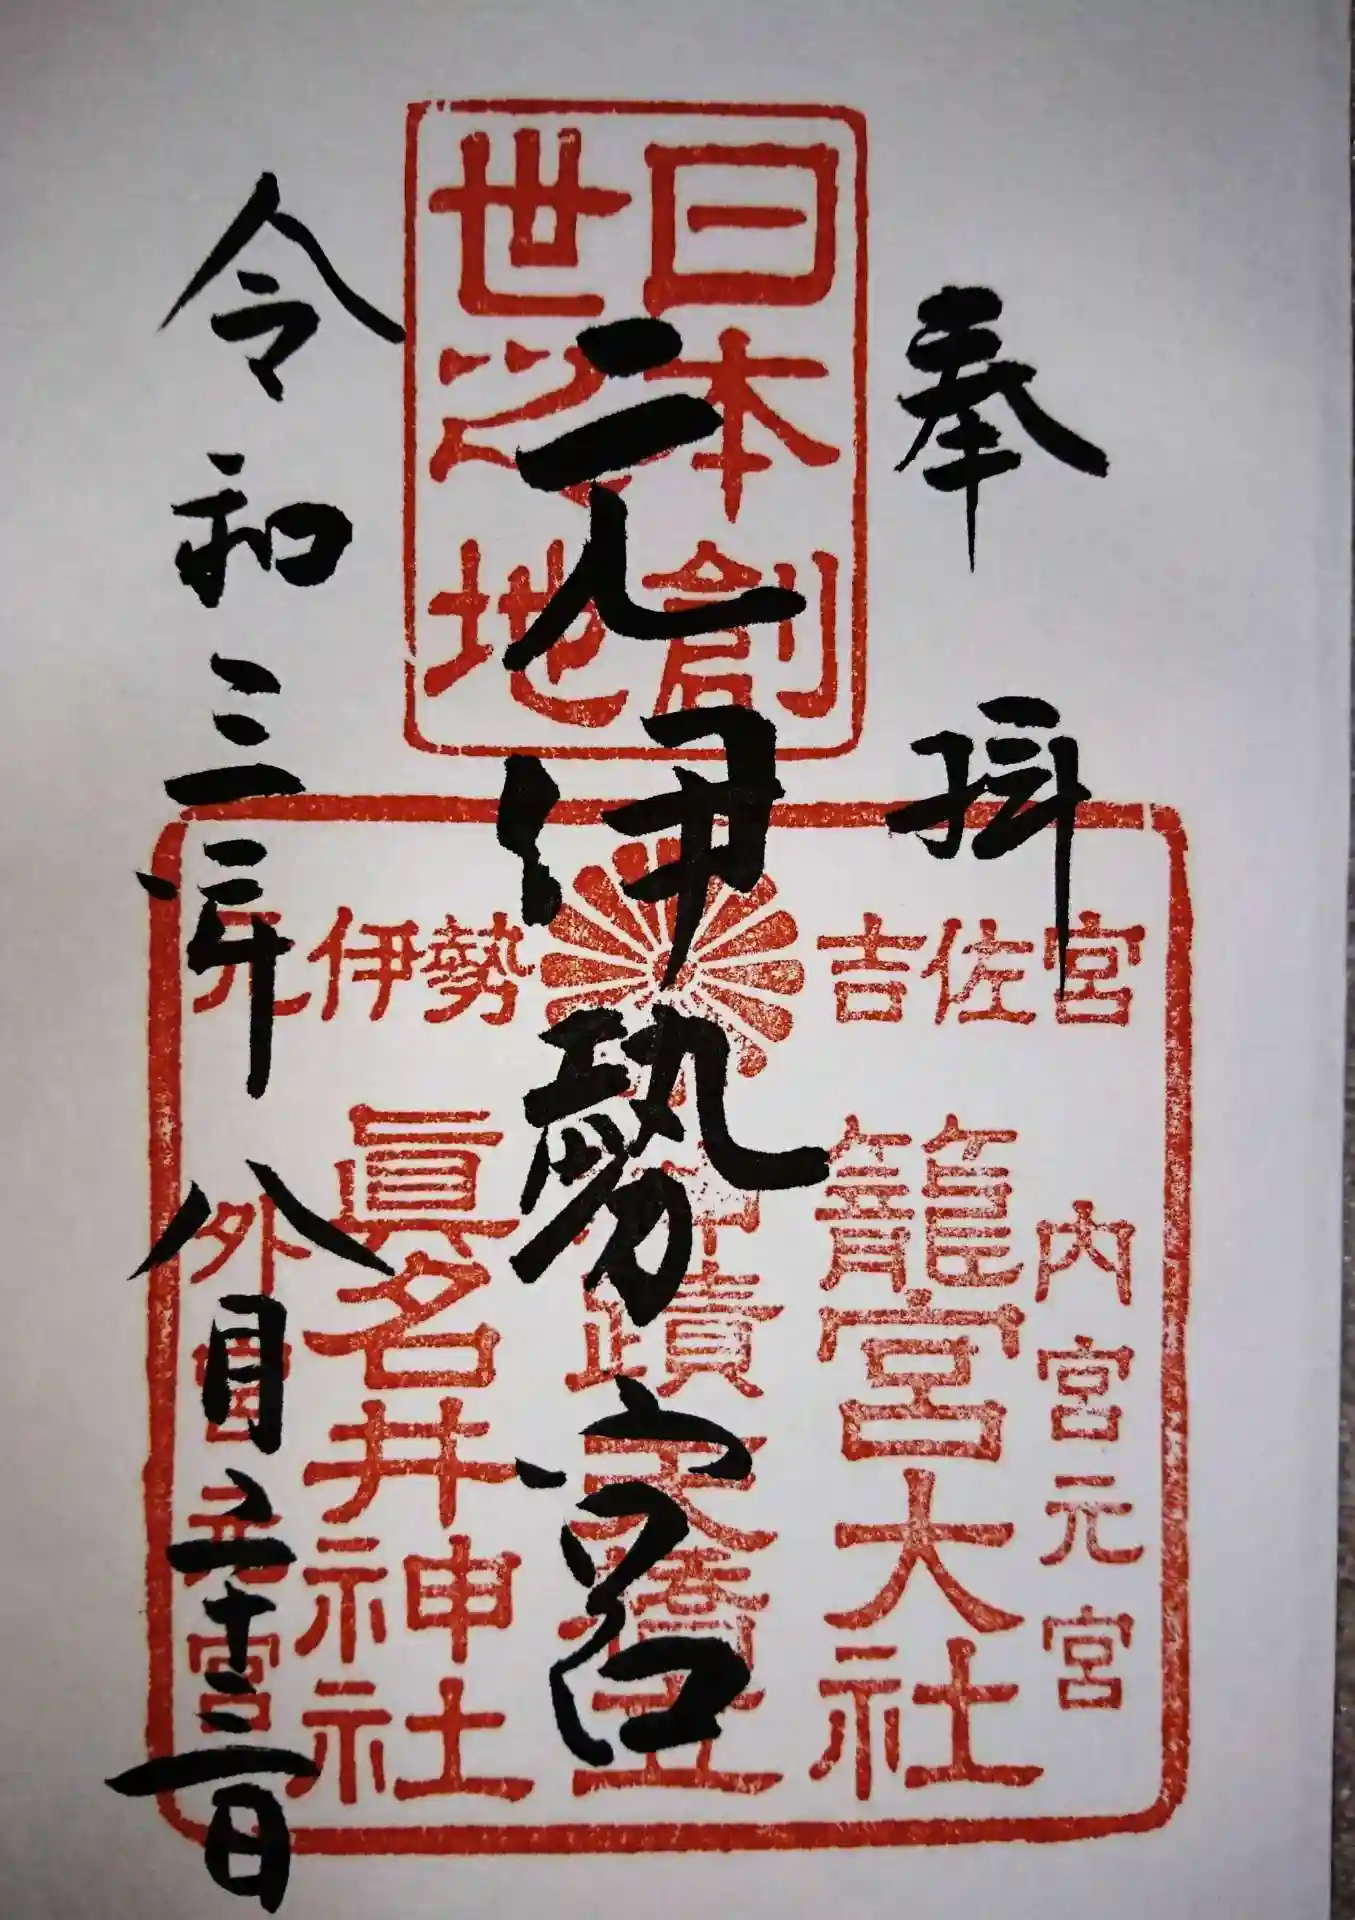 奉拝
元伊勢宮
令和三年八月二十二日
日本創
世之地
吉佐宮
元伊勢
内宮元宮
籠宮大社
神蹟天橋立
眞名井神社
外宮元宮